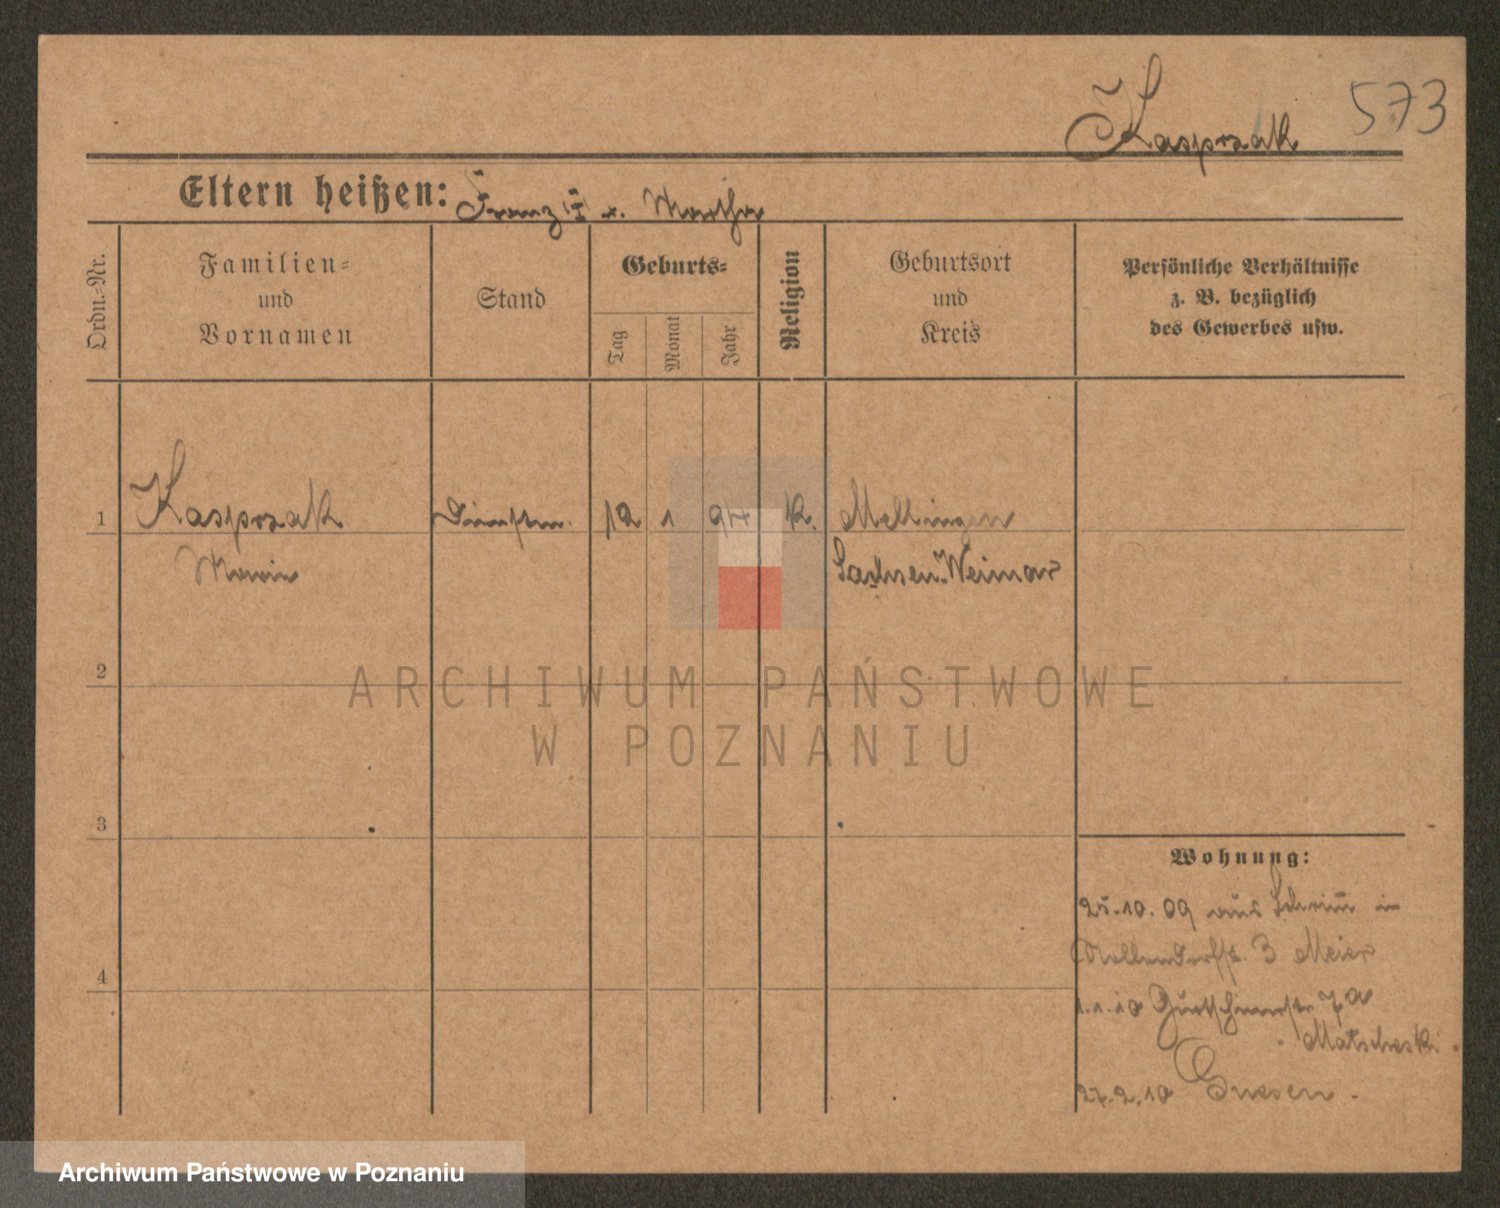 Kasprzak 573
Eltern heißen: Franz u. Martha
Ordn.-Nr.
Familien-
und
Vornamen
Stand
Geburts-
Tag
Monat
Jahr
Religion
Geburtsort
und
Kreis
Persönliche Verhältnisse
z. B. bezüglich
des Gewerbes usw.
1 Kasprzak Dienstm. 12 1 94 K. Mellingen
Maria Sachsen-Weimar
2
3
4
Wohnung:
25.10.09 aus Schrimm in
Nollendorfstr. 3 Meier
1.1.10 Gurtschinerstr 7a
Matscheski.
27.2.10 Gnesen.
ARCHIWUM PAŃSTWOWE
W POZNANIU
Archiwum Państwowe w Poznaniu